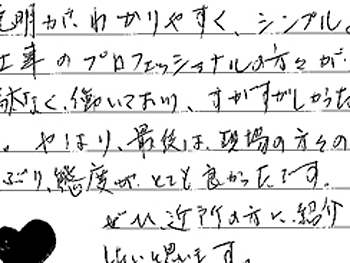 説明が、わかりやすく、シンプル。
工事のプロフェッショナルの方々が
なく、働いており、すがすがしかった
。やはり、最後は、現場の方々の
ぶり、態度が、とても良かったです。
ぜひ近所の方に、紹介
したいと思います。